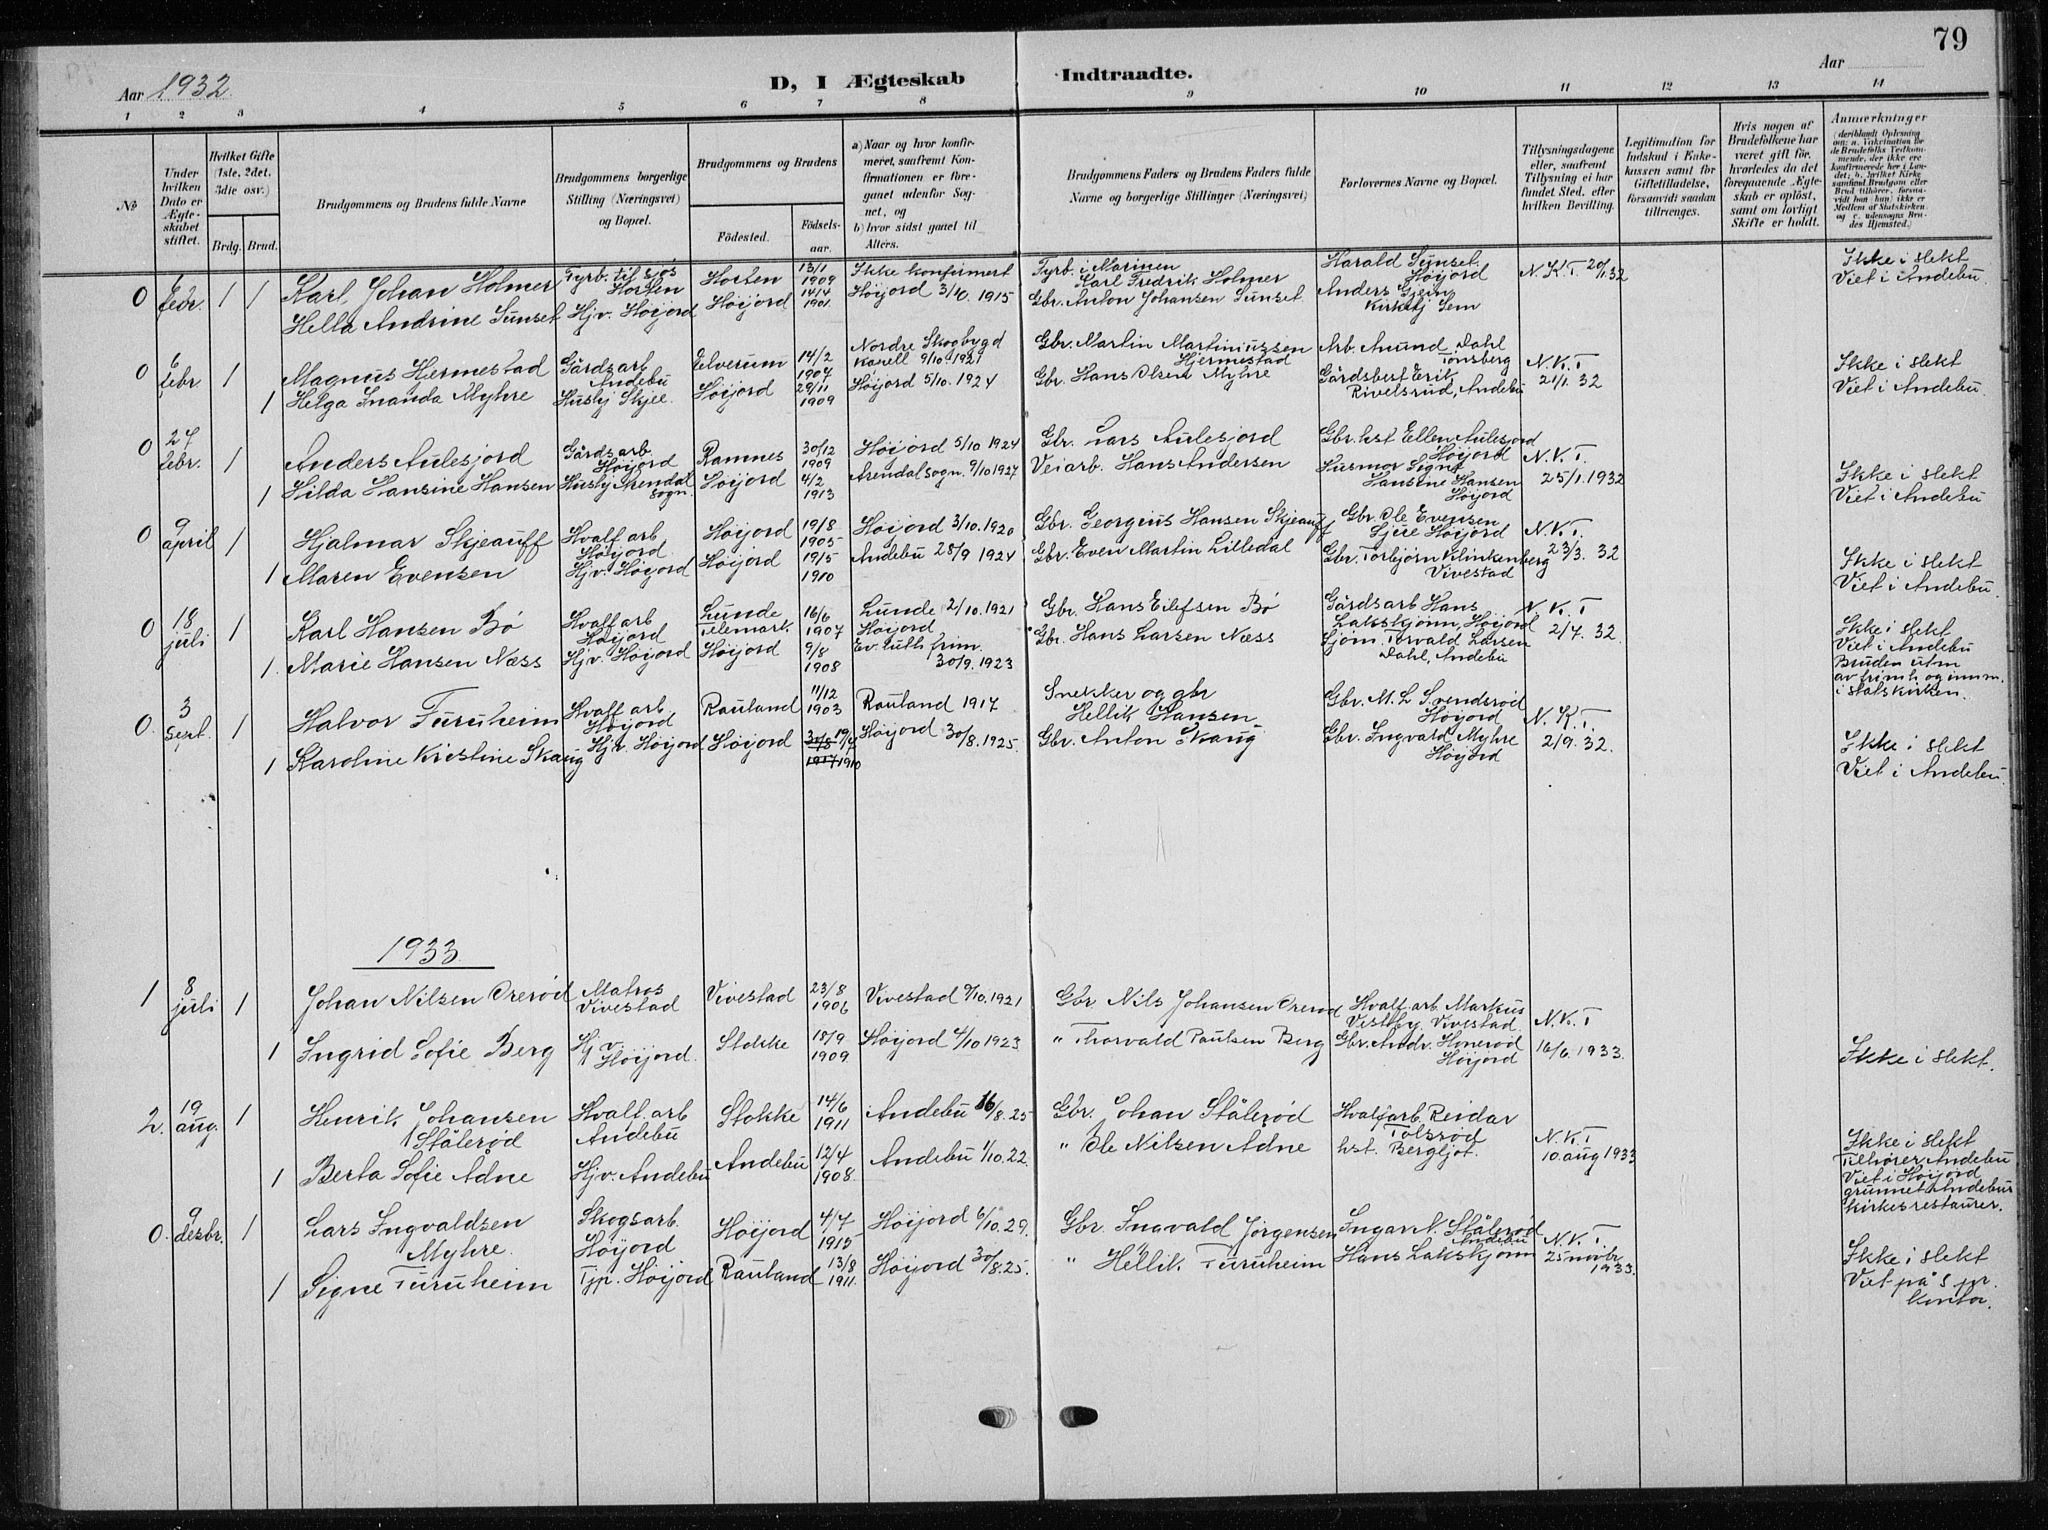 79
Aar 1932.
D, I Ægteskab Indtraadte.
Aar
1 2 3 4 5 6 7 8 9 10 11 12 13 14
№
Under hvilken Dato er Ægteskabet stiftet.
Hvilket Gifte (1ste, 2det, 3die osv.)
Brdg. Brud.
Brudgommens og Brudens fulde Navne
Brudgommens borgerlige Stilling (Næringsvei) og Bopæl.
Brudgommens og Brudens
Fødested.
Fødselsaar.
a) Naar og hvor konfirmeret, saafremt Konfirmationen er foregaaet udenfor Sognet, og
b) hvor sidst gaaet til Alters.
Brudgommens Faders og Brudens Faders fulde Navne og borgerlige Stillinger (Næringsvei)
Forlovernes Navne og Bopæl.
Tillysningsdagene eller, saafremt Tillysning ei har fundet Sted, efter hvilken Bevilling.
Legitimation for Indskud i Enkekassen samt for Giftetilladelse, forsaavidt saadan tiltrænges.
Hvis nogen af Brudefolkene har været gift før, hvorledes da det foregaaende Ægteskab er opløst, samt om lovligt Skifte er holdt.
Anmærkninger
(deriblandt Oplysning om: a. Vakcination for de Brudefolks Vedkommende, der ikke ere konfirmerede her i Landet; b. hvilket Kirkesamfund Brudgom eller Brud tilhører, forsaavidt han (hun) ikke er Medlem af Statskirken, og c. udensogns Brudes Hjemsted.)
0 febr. 1 1 Karl Johan Holmer Fyrb. til sjøs Horten Horten 13/1 1909 Ikke konfirmert Fyrb. i Marinen Karl Fredrik Holmer Harald Sunset Høijord N.K.T. 20/1 32 Ikke i slekt Viet i Andebu
Hella Andrine Sunset Hjv. Høijord Høijord 14/4 1901. Høijord 3/10. 1915 Gbr. Anton Johansen Sunset. Anders Gjein Kirketj Sem
0 6 febr. 1 Magnus Hjermestad Gårdsarb Andebu Elverum 14/2 1904 Nordre Skogbygd kapell 9/10 1921 Gbr. Martin Martiniussen Hjermestad Arb. Amund Dahl Tønsberg N.K.T 21/1. 32 Ikke i slekt Viet i Andebu.
1 Helga Inanda Myhre Hushj Skjee. Høijord 29/11 1909 Høijord 5/10. 1924 Gbr. Hans Olsen Myhre Gårdsbest Erik Rivelsrud, Andebu
0 27 febr. 1 Anders Aulesjord Gårdsarb Høijord Ramnes 30/12 1909 Høijord 5/10 1924 Gbr. Lars Aulesjord Gbr. hst Ellen Aulesjord Høijord N.K.T. 25/1. 1932 Ikke i slekt Viet i Andebu
1 Hilda Hansine Hansen Hushj Arendal sogn. Høijord 4/2 1913 Arendal sogn. 9/10 1927 Veiarb. Hans Andersen Husmor Signe Hansine Hansen Høijord
0 9 april 1 Hjalmar Skjeauff Hvalf arb Høijord Høijord 19/8 1905 Høijord 3/10. 1920 Gbr. Georgius Hansen Skjeauff Gbr. Ole Evensen Gjere Høijord N.K.T. 23/3. 32 Ikke i slekt Viet i Andebu.
1 Maren Evensen Hjv. Høijord Høijord 19/5 1910 Andebu 28/9 1924 Gbr. Even Martin Lilledal Gbr. Torbjørn Klinkenberg Vivestad
0 18 juli 1 Karl Hansen Bø Hvalf arb Høijord Lunde Telemark. 16/6 1907 Lunde 2/10. 1921 Gbr. Hans Eilefsen Bø Gårdsarb Hans Lakskjønn, Høijord N.K.T 2/7. 32. Ikke i slekt Viet i Andebu Bruden utm av frimh og innm. i statskirken.
1. Marie Hansen Næss Hjv. Høijord Høijord 9/8 1908 Høijord Ev. luth frim. 30/9. 1923 Gbr. Hans Larsen Næss Sjøm. Torvald Larsen Dahl, Andebu
0. 3 Sept. 1 Halvor Furuheim Hvalf arb. Høijord Rauland 11/12 1903 Rauland 1917 Snekker og gbr Hellik Hansen Gbr. M. L Svendsrød Høijord N.K.T. 2/9. 32. Ikke i slekt Viet i Andebu.
1 Karoline Kristine Skaug Hjv. Høijord Høijord 30/8 19/7 1917 1910 Høijord 30/8. 1925. Gbr. Anton Skaug Gbr. Ingvald Myhre Høijord
1933
1 8 juli 1 Johan Nilsen Orerød Matros Vivestad Vivestad 23/8 1906 Vivestad 9/10. 1921 Gbr Nils Johansen Orerød Hvalf arb Markus Vestby. Vivestad N.K.T 16/6. 1933. Ikke i slekt.
1 Ingrid Sofie Berg Hjv. Høijord. Stokke 18/9 1909. Høijord 4/10 1923 " Thorvald Paulsen Berg Gbr. Andr. Honerød Høijord
2. 19 aug. 1 Henrik Johansen Stålerød Hvalf. arb Andebu Stokke 14/6 1911 Andebu 16/8. 25. Gbr. Johan Stålerød Hvalfarb Reidar Tolsrød N.K.T 10. aug 1933 Ikke i slekt Tilhører Andebu Viet i Høijord grunnet Andebu kirkes restaurer.
1 Berta Sofie Adne Hjv. Andebu Andebu 12/4 1908. Andebu 1/10. 22. " Ole Nilsen Adne hst. Bergljot.
0. 9 desbr. 1 Lars Ingvaldsen Myhre. Skogsarb. Høijord Høijord 4/7 1915 Høijord 6/10. 29. Gbr. Ingvald Jørgensen Ingar N. Stålerød Andebu N.K.T. 25 novbr 1933. Ikke i slekt Viet på s.pr. kontor.
1 Signe Furuheim Tjp. Høijord Rauland 13/8 1911. Høijord 30/8. 25. " Hellik Furuheim Hans Lakskjønn